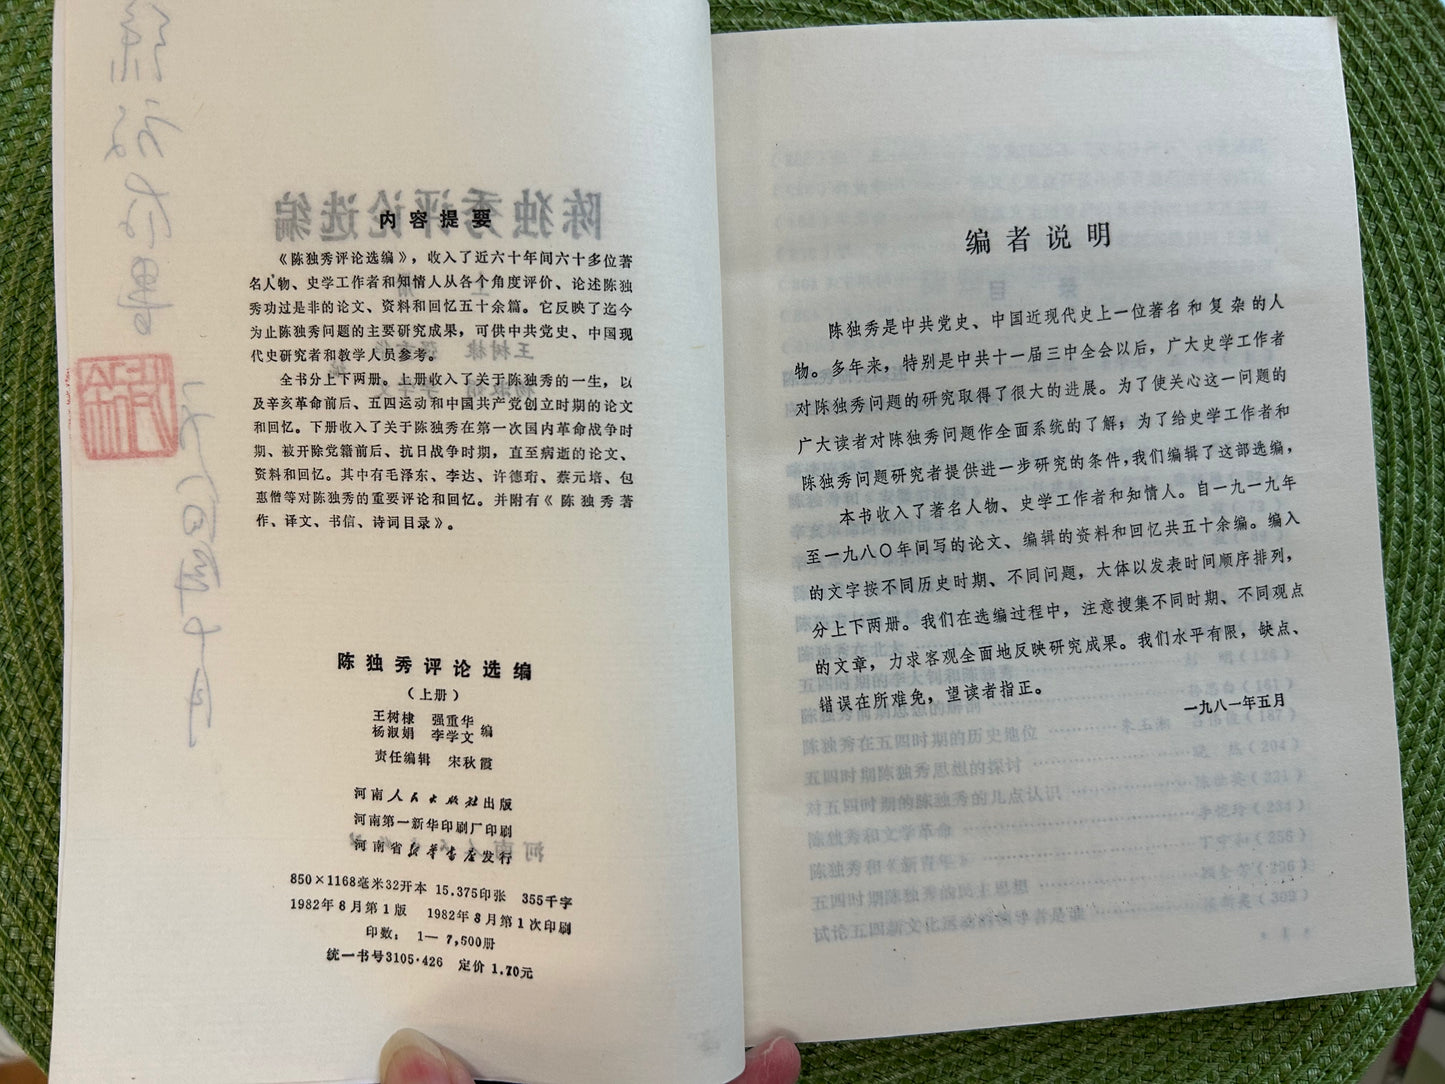 内容提要
《陈独秀评论选编》，收入了近六十年间六十多位著
名人物、史学工作者和知情人从各个角度评价、论述陈独
秀功过是非的论文、资料和回忆五十余篇。它反映了迄今
为止陈独秀问题的主要研究成果，可供中共党史、中国现
代史研究者和教学人员参考。
全书分上下两册。上册收入了关于陈独秀的一生，以
及辛亥革命前后、五四运动和中国共产党创立时期的论文
和回忆。下册收入了关于陈独秀在第一次国内革命战争时
期、被开除党籍前后、抗日战争时期，直至病逝的论文、
资料和回忆。其中有毛泽东、李达、许德珩、蔡元培、包
惠僧等对陈独秀的重要评论和回忆。并附有《陈独秀著
作、译文、书信、诗词目录》。
陈独秀评论选编
（上册）
王树棣 强重华
杨淑娟 李学文 编
责任编辑 宋秋霞
河南人民出版社出版
河南第一新华印刷厂印刷
河南省新华书店发行
850×1168毫米32开本 15.375印张 355千字
1982年8月第1版 1982年8月第1次印刷
印数：1—7,500册
统一书号3105·426 定价1.70元
编者说明
陈独秀是中共党史、中国近现代史上一位著名和复杂的人
物。多年来，特别是中共十一届三中全会以后，广大史学工作者
对陈独秀问题的研究取得了很大的进展。为了使关心这一问题的
广大读者对陈独秀问题作全面系统的了解；为了给史学工作者和
陈独秀问题研究者提供进一步研究的条件，我们编辑了这部选编，
本书收入了著名人物、史学工作者和知情人。自一九一九年
至一九八〇年间写的论文、编辑的资料和回忆共五十余编。编入
的文字按不同历史时期、不同问题，大体以发表时间顺序排列，
分上下两册。我们在选编过程中，注意搜集不同时期、不同观点
的文章，力求客观全面地反映研究成果。我们水平有限，缺点、
错误在所难免，望读者指正。
一九八一年五月
陈独秀在五四时期的历史地位
五四时期陈独秀思想的探讨
对五四时期的陈独秀的几点认识
陈独秀和文学革命
陈独秀和《新青年》
五四时期陈独秀的民主思想
试论五四新文化运动的领导者是谁